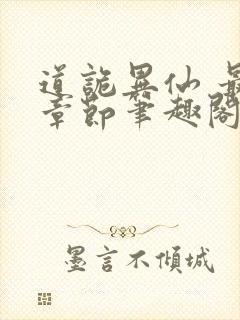 道詭異仙 最
章節筆趣閣
墨言不傾城